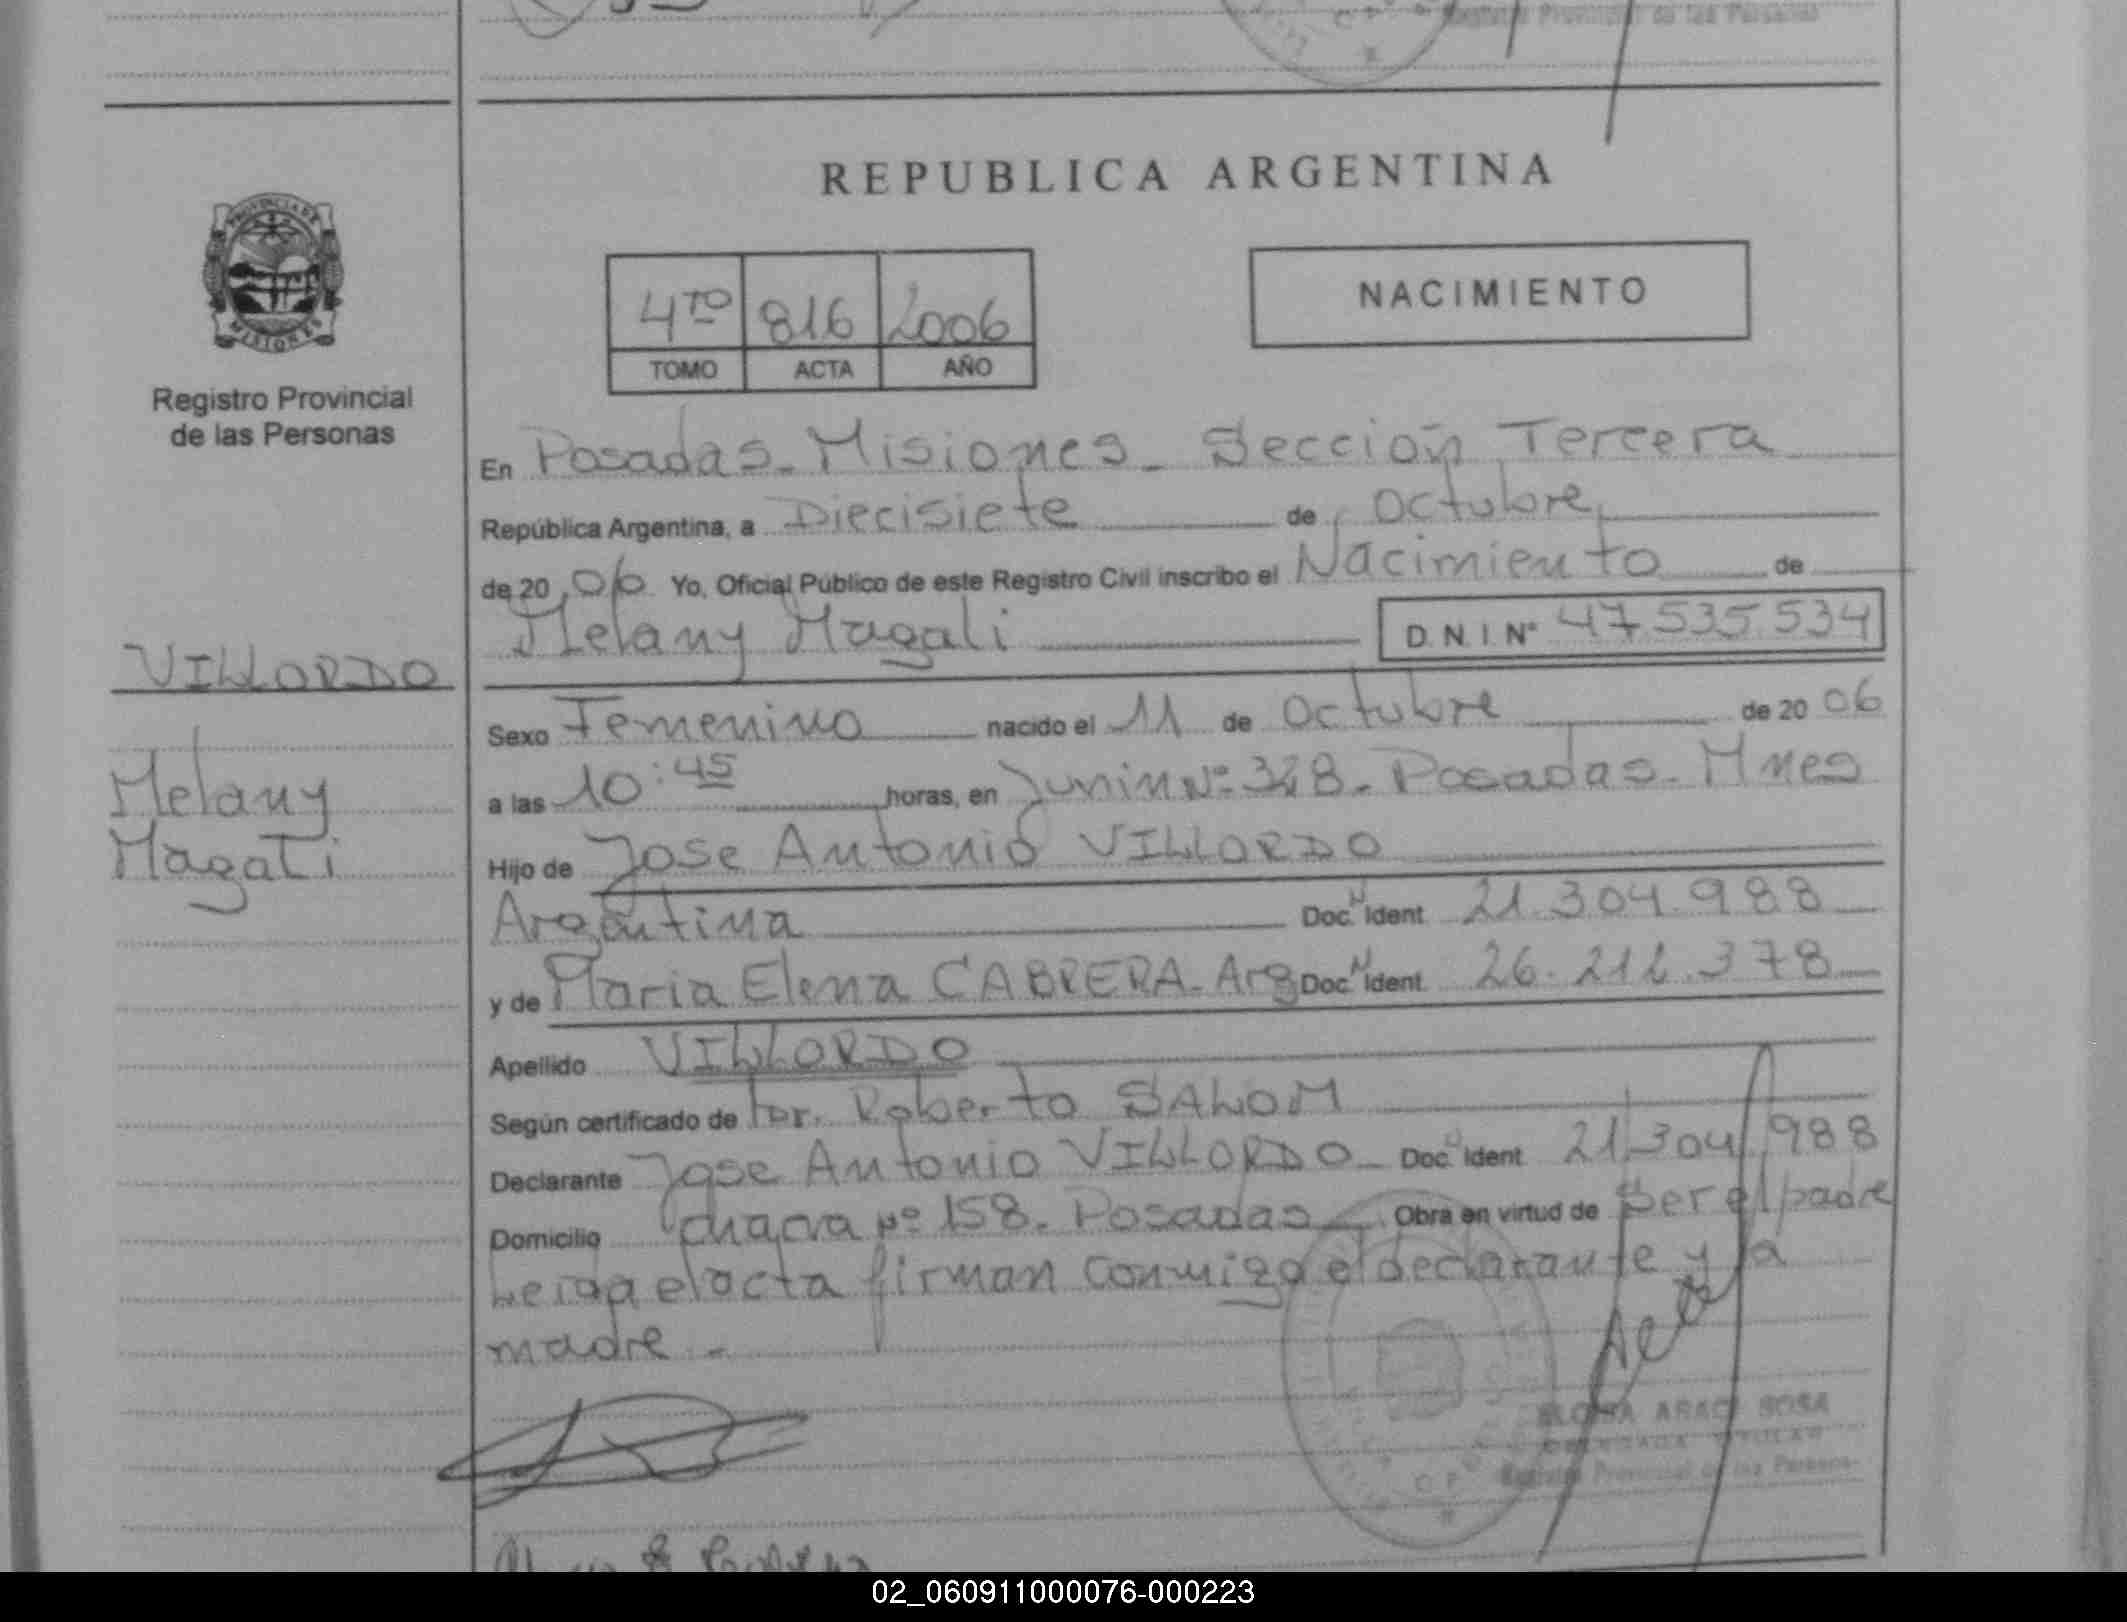 Registro Provincial de las Personas
REPUBLICA ARGENTINA
PROVINCIA DE
MISIONES
Registro Provincial
de las Personas
4TO 816 2006
TOMO ACTA AÑO
NACIMIENTO
En Posadas - Misiones - Sección Tercera
República Argentina, a Diecisiete de Octubre
de 20 06 Yo, Oficial Público de este Registro Civil inscribo el Nacimiento de
Melany Magali D.N.I. Nº 47.535.534
VILLORDO
Melany
Magali
Sexo Femenino nacido el 11 de Octubre de 20 06
a las 10:45 horas, en Junin Nº 328 - Posadas - Mnes
Hijo de Jose Antonio VILLORDO
Argentina Doc. N Ident 21.304.988
y de Maria Elena CABRERA - Arg Doc. N Ident 26.212.378
Apellido VILLORDO
Según certificado de Dr. Roberto SALOM
Declarante Jose Antonio VILLORDO - Doc. Ident 21.304.988
Domicilio chacra Nº 158 - Posadas Obra en virtud de Ser el padre
Leida el acta firman conmigo el declarante y la
madre -
ARACI SOSA
Registro Provincial de las Personas
02_060911000076-000223